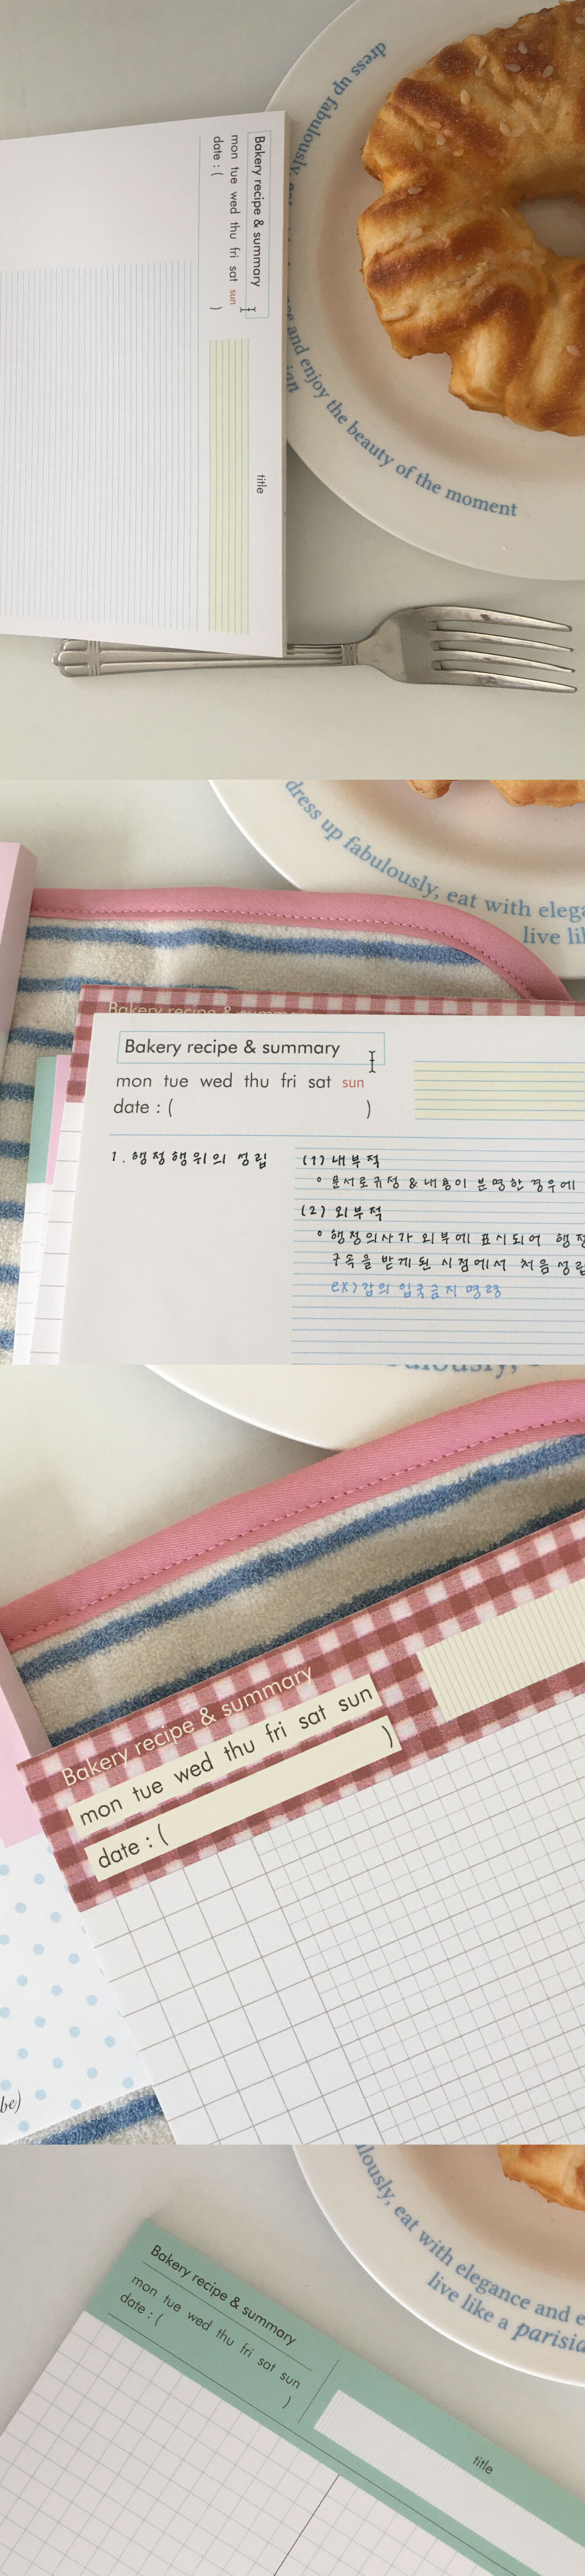 dress up fabulously,
and enjoy the beauty of the moment
Bakery recipe & summary
mon tue wed thu fri sat sun
date : ( )
title
dress up fabulously, eat with elega
live li
Bakery recipe & summary
Bakery recipe & summary
mon tue wed thu fri sat sun
date : ( )
1. 행정행위의 성립
(1) 내부적
◦ 문서로 규정 & 내용이 분명한 경우에
(2) 외부적
◦ 행정의사가 외부에 표시되어 행정
구속을 받게 된 시점에서 처음 성립
ex) 갑의 입국금지 명령
Bakery recipe & summary
mon tue wed thu fri sat sun
date : ( )
be)
lously, eat with elegance and e
live like a parisia
Bakery recipe & summary
mon tue wed thu fri sat sun
date : ( )
title